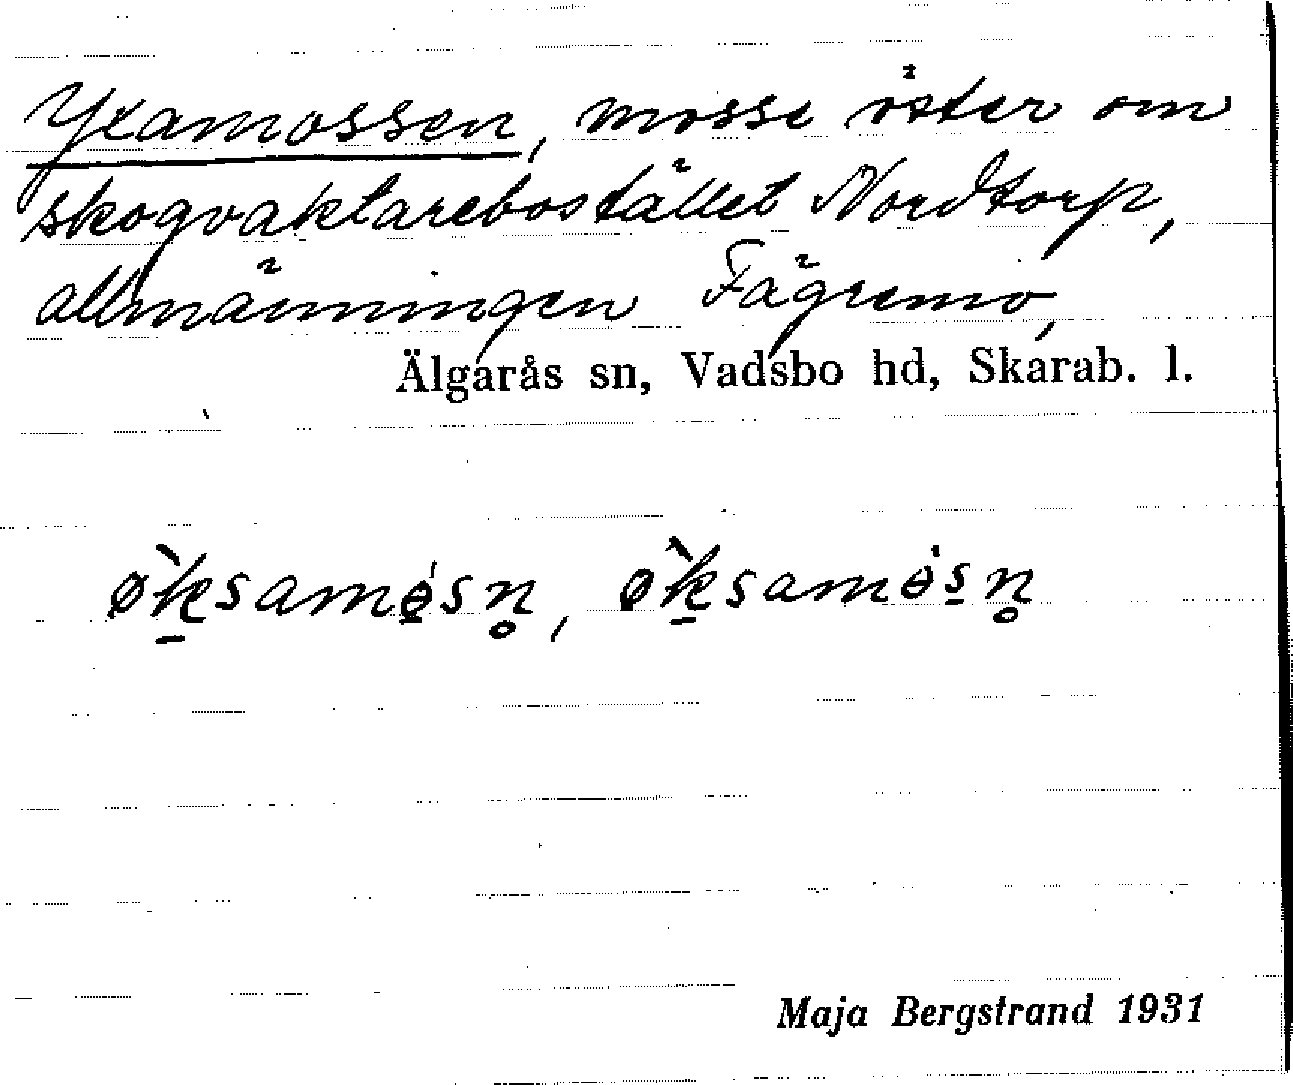 Yxamossen, mosse öster om
skogvaktarebostället Nordtorp,
allmänningen Fägremo,
Älgarås sn, Vadsbo hd, Skarab. l.
ø̀k̠saməsn̥, ø̀k̠saməs̠n̥
Maja Bergstrand 1931